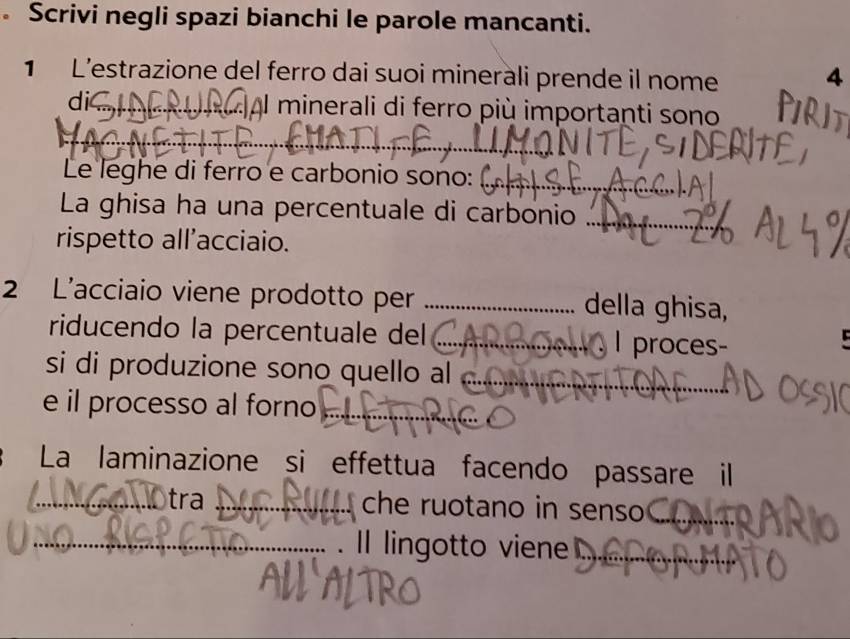 Scrivi negli spazi bianchi le parole mancanti.
1 L'estrazione del ferro dai suoi minerali prende il nome
di SIDERURGIA I minerali di ferro più importanti sono PIRIT
MAGNETITE, EMATITE, LIMONITE, SIDERITE,
Le leghe di ferro e carbonio sono: GHISE, ACCIAI
La ghisa ha una percentuale di carbonio DAL 2% AL 4%
rispetto all'acciaio.
2 L'acciaio viene prodotto per ........ della ghisa,
riducendo la percentuale del CARBONIO I proces-
si di produzione sono quello al CONVERTITORE AD OSSI
e il processo al forno ELETTRICO
La laminazione si effettua facendo passare il
LINGOTTO tra DUE RULLI che ruotano in senso CONTRARIO
UNO RISPETTO . Il lingotto viene DEFORMATO
ALL'ALTRO
4
5